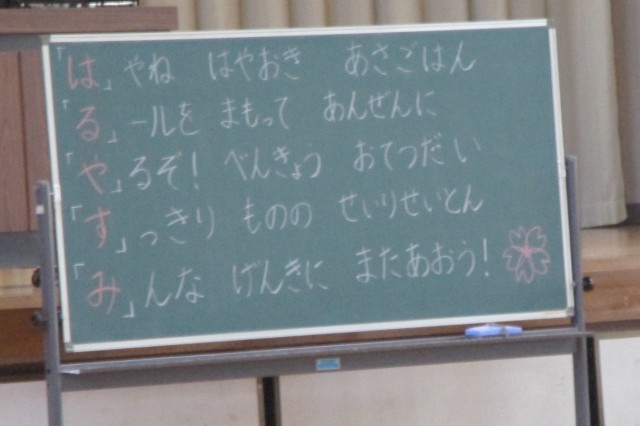 「は」やね　はやおき　あさごはん
「る」ールを　まもって　あんぜんに
「や」るぞ！　べんきょう　おてつだい
「す」っきり　ものの　せいりせいとん
「み」んな　げんきに　またあおう！